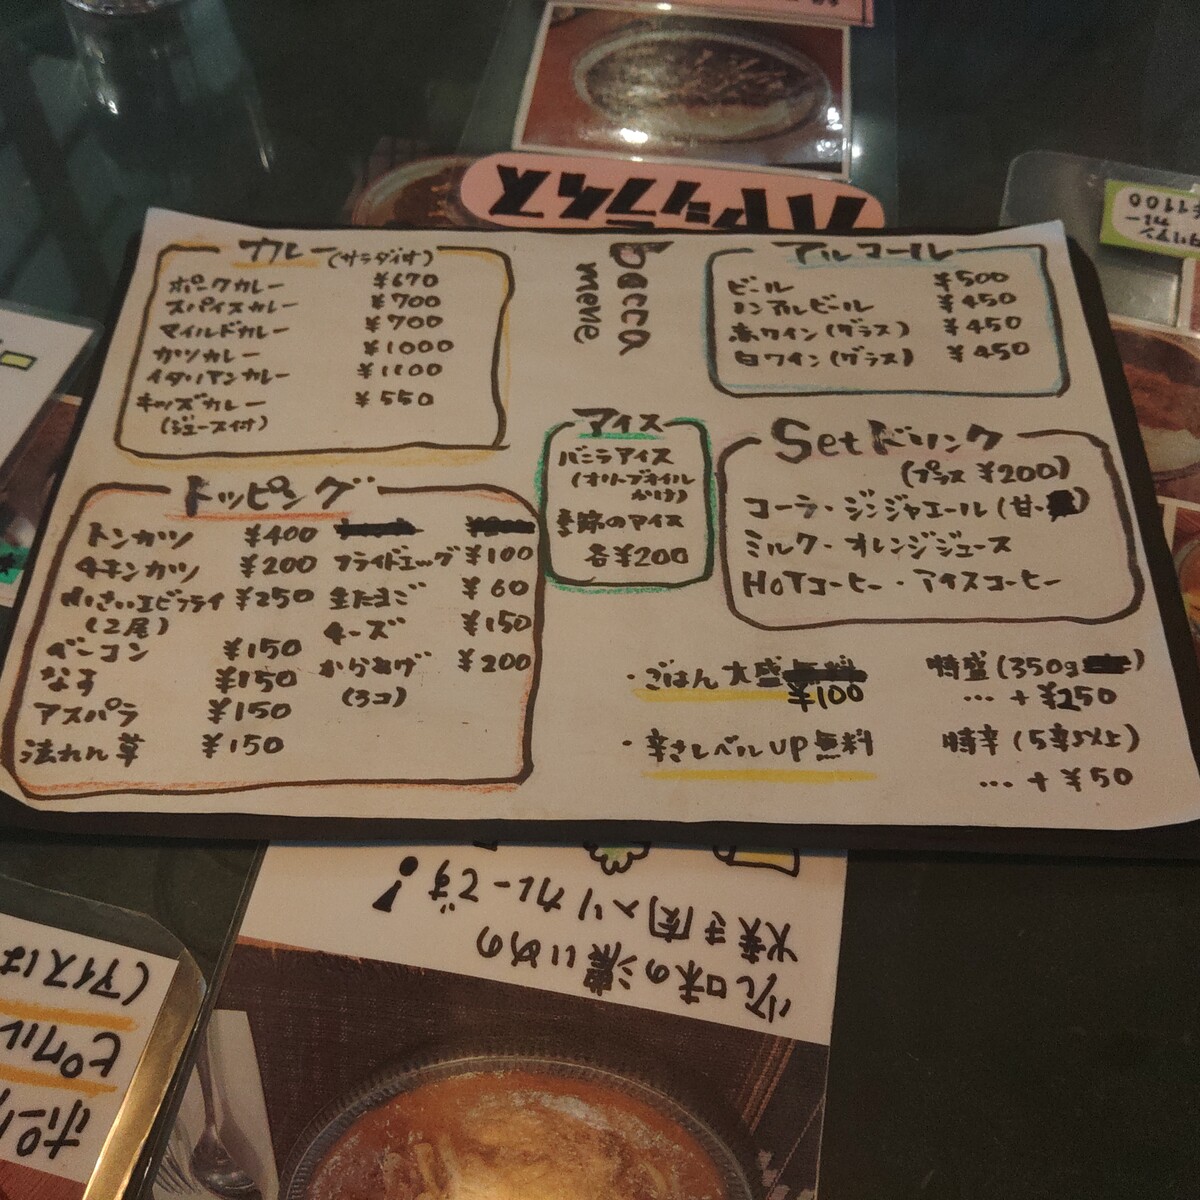 ハヤシライス
カレー(サラダ付)
ポークカレー ¥670
スパイスカレー ¥700
マイルドカレー ¥700
カツカレー ¥1000
イタリアンカレー ¥1100
キッズカレー ¥550
(ジュース付)
トッピング
トンカツ ¥400
チキンカツ ¥200
小さいエビフライ ¥250
(2尾)
ベーコン ¥150
なす ¥150
アスパラ ¥150
法れん草 ¥150
フライドエッグ ¥100
生たまご ¥60
チーズ ¥150
からあげ ¥200
(3コ)
bacca
menu
アイス
バニラアイス
(オリーブオイル
かけ)
季節のアイス
各¥200
アルコール
ビール ¥500
ノンアルビール ¥450
赤ワイン(グラス) ¥450
白ワイン(グラス) ¥450
Setドリンク
(プラス ¥200)
コーラ・ジンジャエール(甘・)
ミルク・オレンジジュース
HOTコーヒー・アイスコーヒー
・ごはん大盛
¥100
特盛(350g)
… + ¥250
・辛さレベルUP無料
特辛(5辛以上)
… + ¥50
少し味の濃いめの
焼き肉メリカレーです!
(アイスは
ピクル
ポーク
¥1100